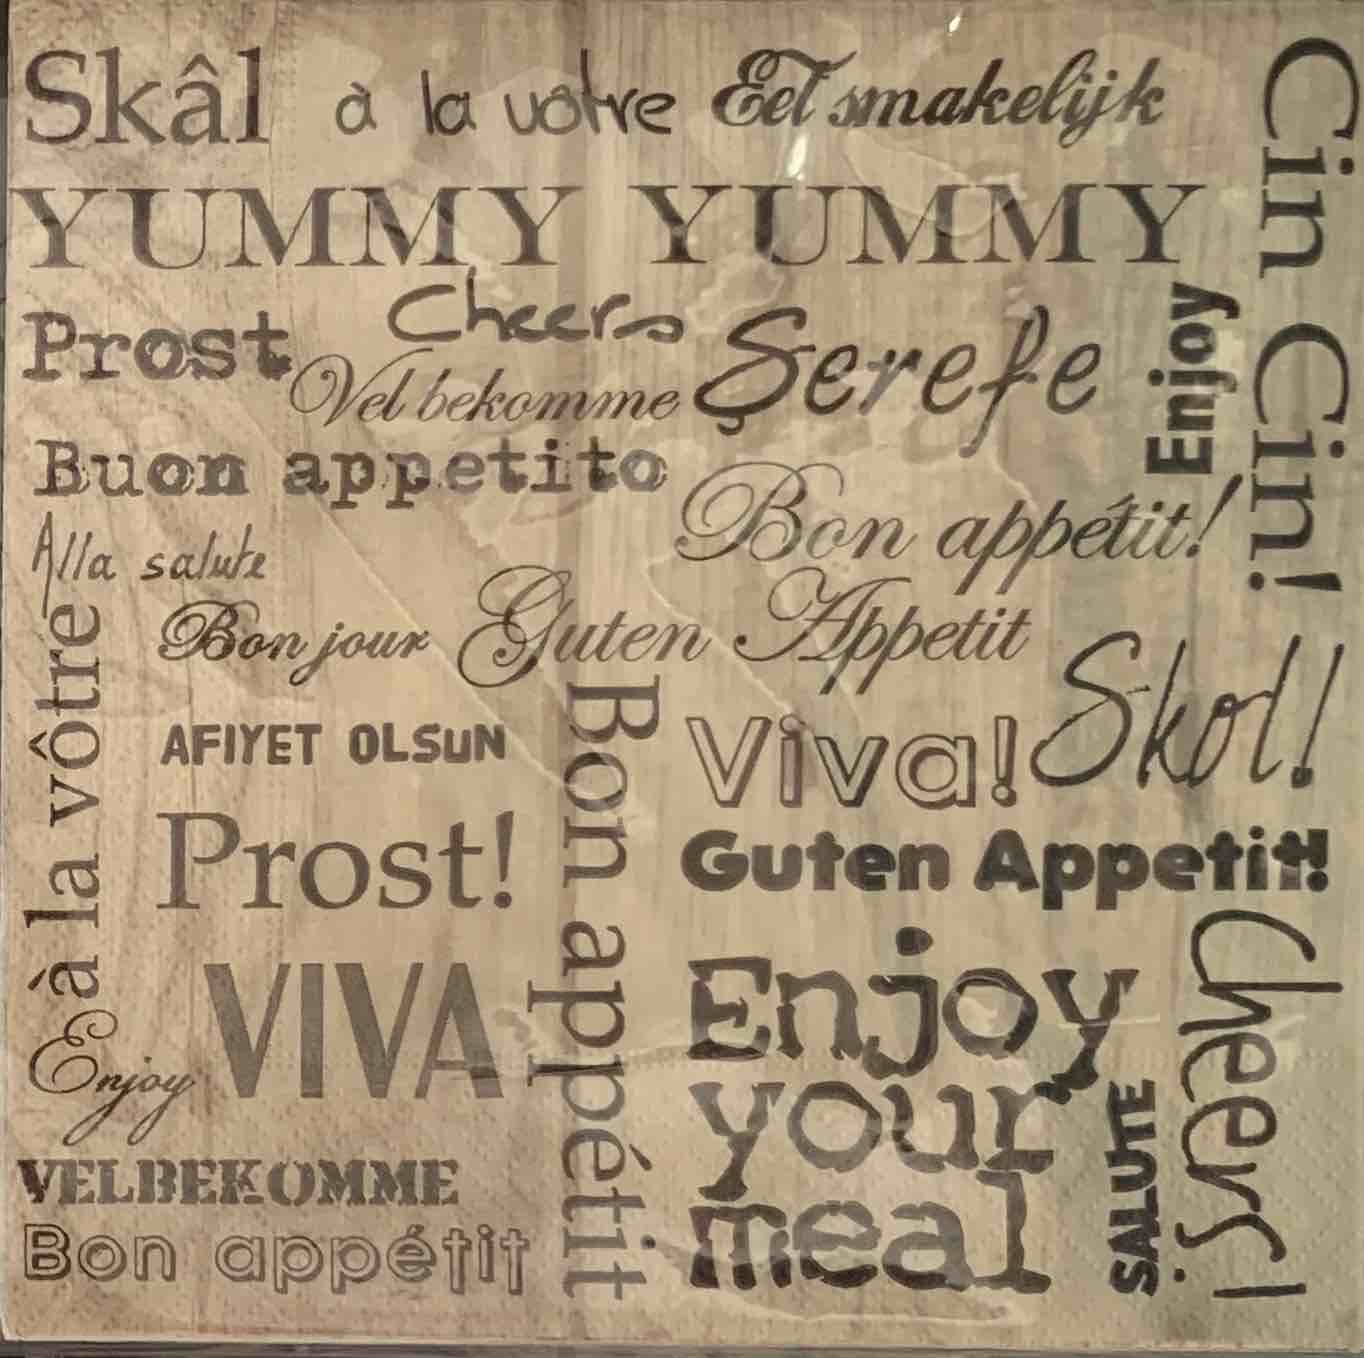 Skâl à la vôtre Eet smakelijk
Cin Cin Cin!
YUMMY YUMMY
Cheers
Prost
Şerefe
Enjoy
Vel bekomme
Buon appetito
Bon appétit!
Alla salute
Bon jour Guten Appetit
à la vôtre
Skol!
AFIYET OLSUN
Bon appétit
Viva!
Prost!
Guten Appetit!
Cheers!
VIVA
Enjoy
your
meal
Enjoy
SALUTE
VELBEKOMME
Bon appétit